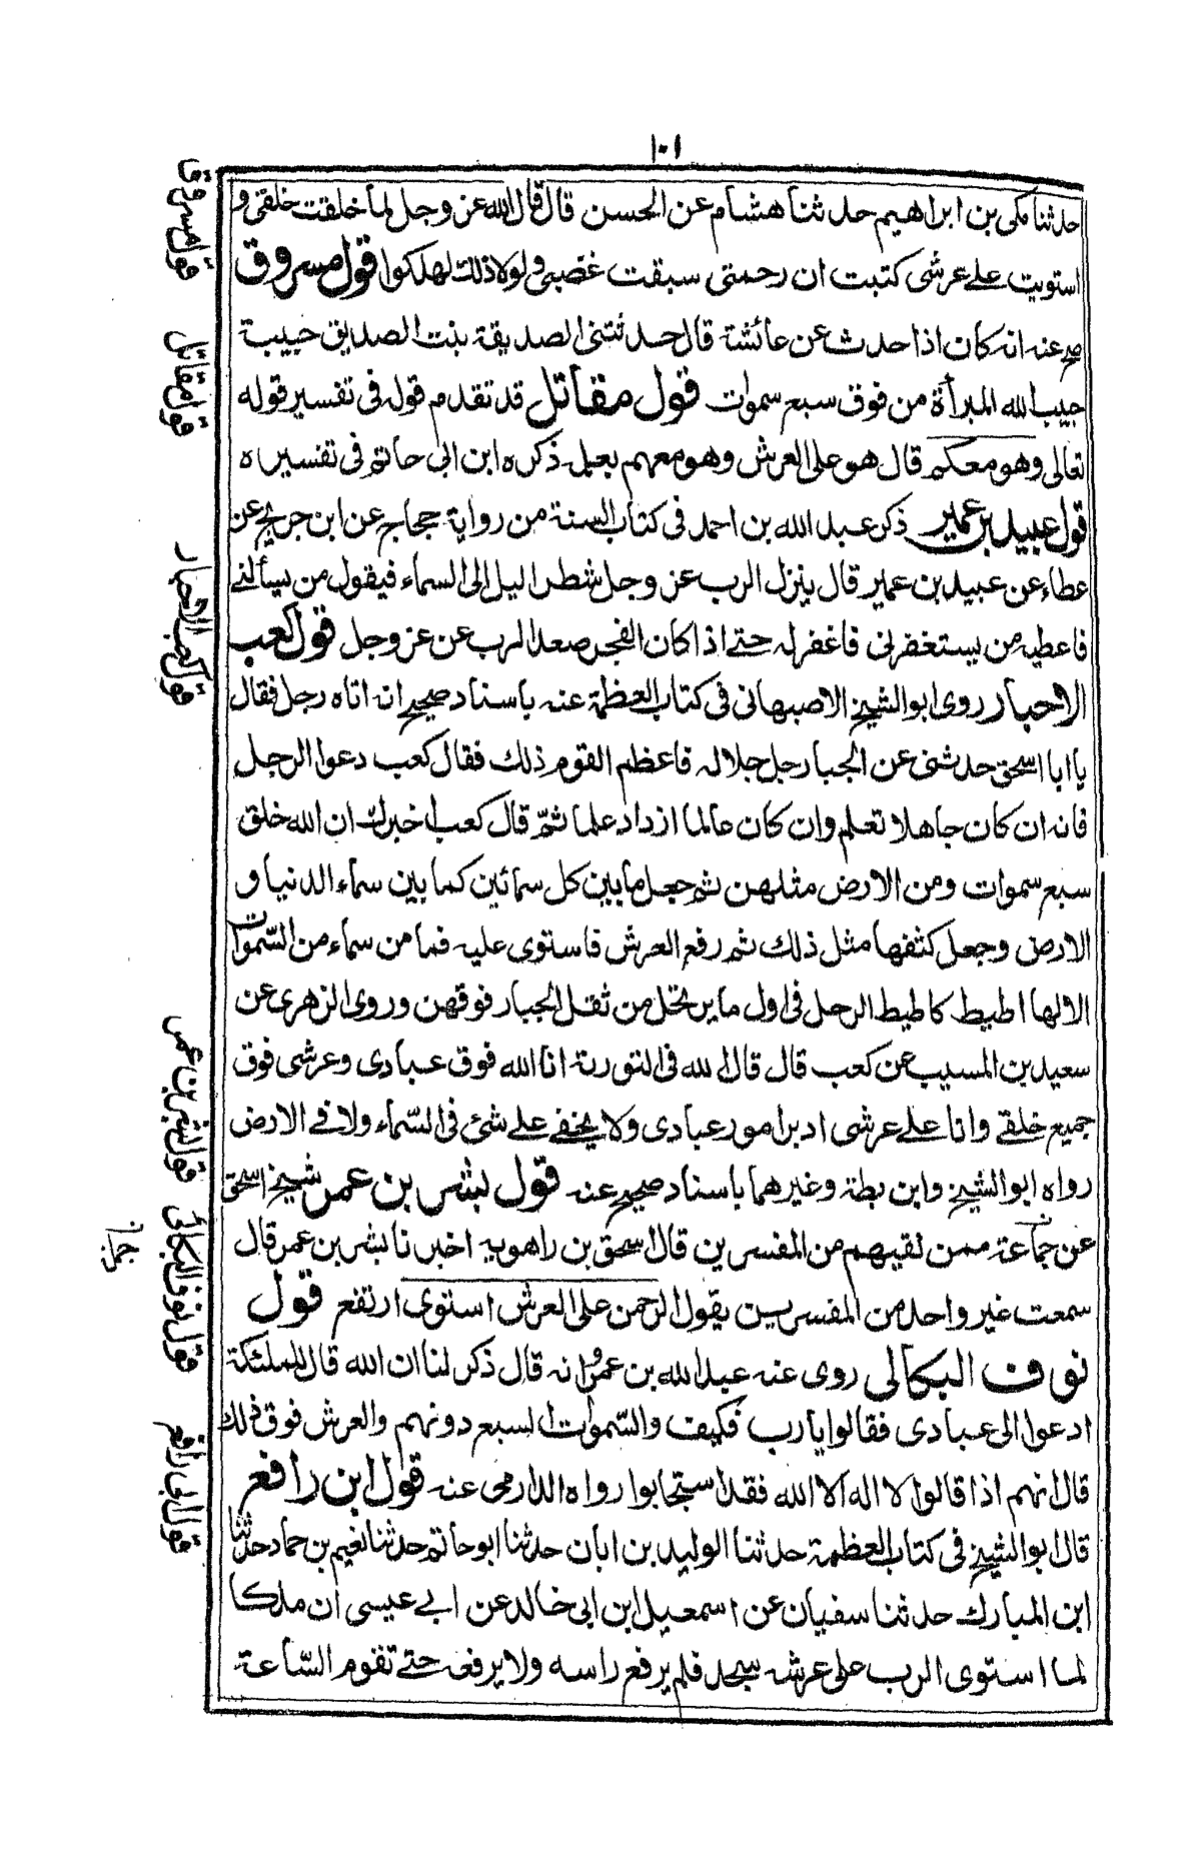 ١٠١
حدثنا مكى بن ابراهيم حدثنا هشام عن الحسن قال قال الله عز وجل لما خلقت خلقى و
استويت على عرشى كتبت ان رحمتى سبقت غضبى ولولا ذلك لهلكوا قول مسروق
صح عنه انه كان اذا حدث عن عائشة قال حدثتنى الصديقة بنت الصديق حبيبة
حبيب الله المبرأة من فوق سبع سموات قول مقاتل قد تقدم قوله فى تفسير قوله
تعالى وهو معكم قال هو على العرش وهو معهم بعلمه ذكره ابن ابى حاتم فى تفسيره
قول عبيد بن عمير ذكر عبد الله بن احمد فى كتاب السنة من رواية حجاج عن ابن جريج عن
عطاء عن عبيد بن عمير قال ينزل الرب عز وجل شطر اليل الى السماء فيقول من يسألنى
فاعطيه من يستغفرنى فاغفر له حتى اذا كان الفجر صعد الرب عن عز وجل قول كعب
الاحبار روى ابو الشيخ الاصبهانى فى كتاب العظمة عنه باسناد صحيح انه اتاه رجل فقال
يا ابا اسحق حدثنى عن الجبار جل جلاله فاعظم القوم ذلك فقال كعب دعوا الرجل
فانه ان كان جاهلا تعلم وان كان عالما ازداد علما ثم قال كعب اخبرك ان الله خلق
سبع سموات ومن الارض مثلهن ثم جعل ما بين كل سمائين كما بين سماء الدنيا و
الارض وجعل كثفها مثل ذلك ثم رفع العرش فاستوى عليه فما من سماء من السموات
الا لها اطيط كاطيط الرحل فى اول ما يرتحل من ثقل الجبار فوقهن وروى الزهرى عن
سعيد بن المسيب عن كعب قال قال الله فى التورىة انا الله فوق عبادى وعرشى فوق
جميع خلقى وانا على عرشى ادبر امور عبادى ولا يخفى على شئ فى السماء ولا فى الارض
رواه ابو الشيخ وابن بطة وغيرهما باسناد صحيح عنه قول بشر بن عمر شيخ اسحق
عن جماعة ممن لقيهم من المفسرين قال اسحق بن راهويه اخبرنا بشر بن عمر قال
سمعت غير واحد من المفسرين يقول الرحمن على العرش استوى ارتفع قول
نوف البكالى روى عنه عبد الله بن عمرو انه قال ذكر لنا ان الله قال للملئكة
ادعوا الى عبادى فقالوا يا رب فكيف والسموات السبع دونهم والعرش فوق ذلك
قال انهم اذا قالوا لا اله الا الله فقد استجابوا رواه الدارمى عنه قول ابن رافع
قال ابو الشيخ فى كتاب العظمة حدثنا الوليد بن ابان حدثنا ابو حاتم حدثنا نعيم بن حماد حدثنا
ابن المبارك حدثنا سفيان عن اسمعيل ابن ابى خالد عن ابى عيسى ان ملكا
لما استوى الرب على عرشه سجد فلم يرفع راسه ولا يرفعه حتى تقوم الساعة
قول مسروق
قول مقاتل
قول كعب الاحبار
قول بشر بن عمر
قول نوف البكالى
قول ابن رافع